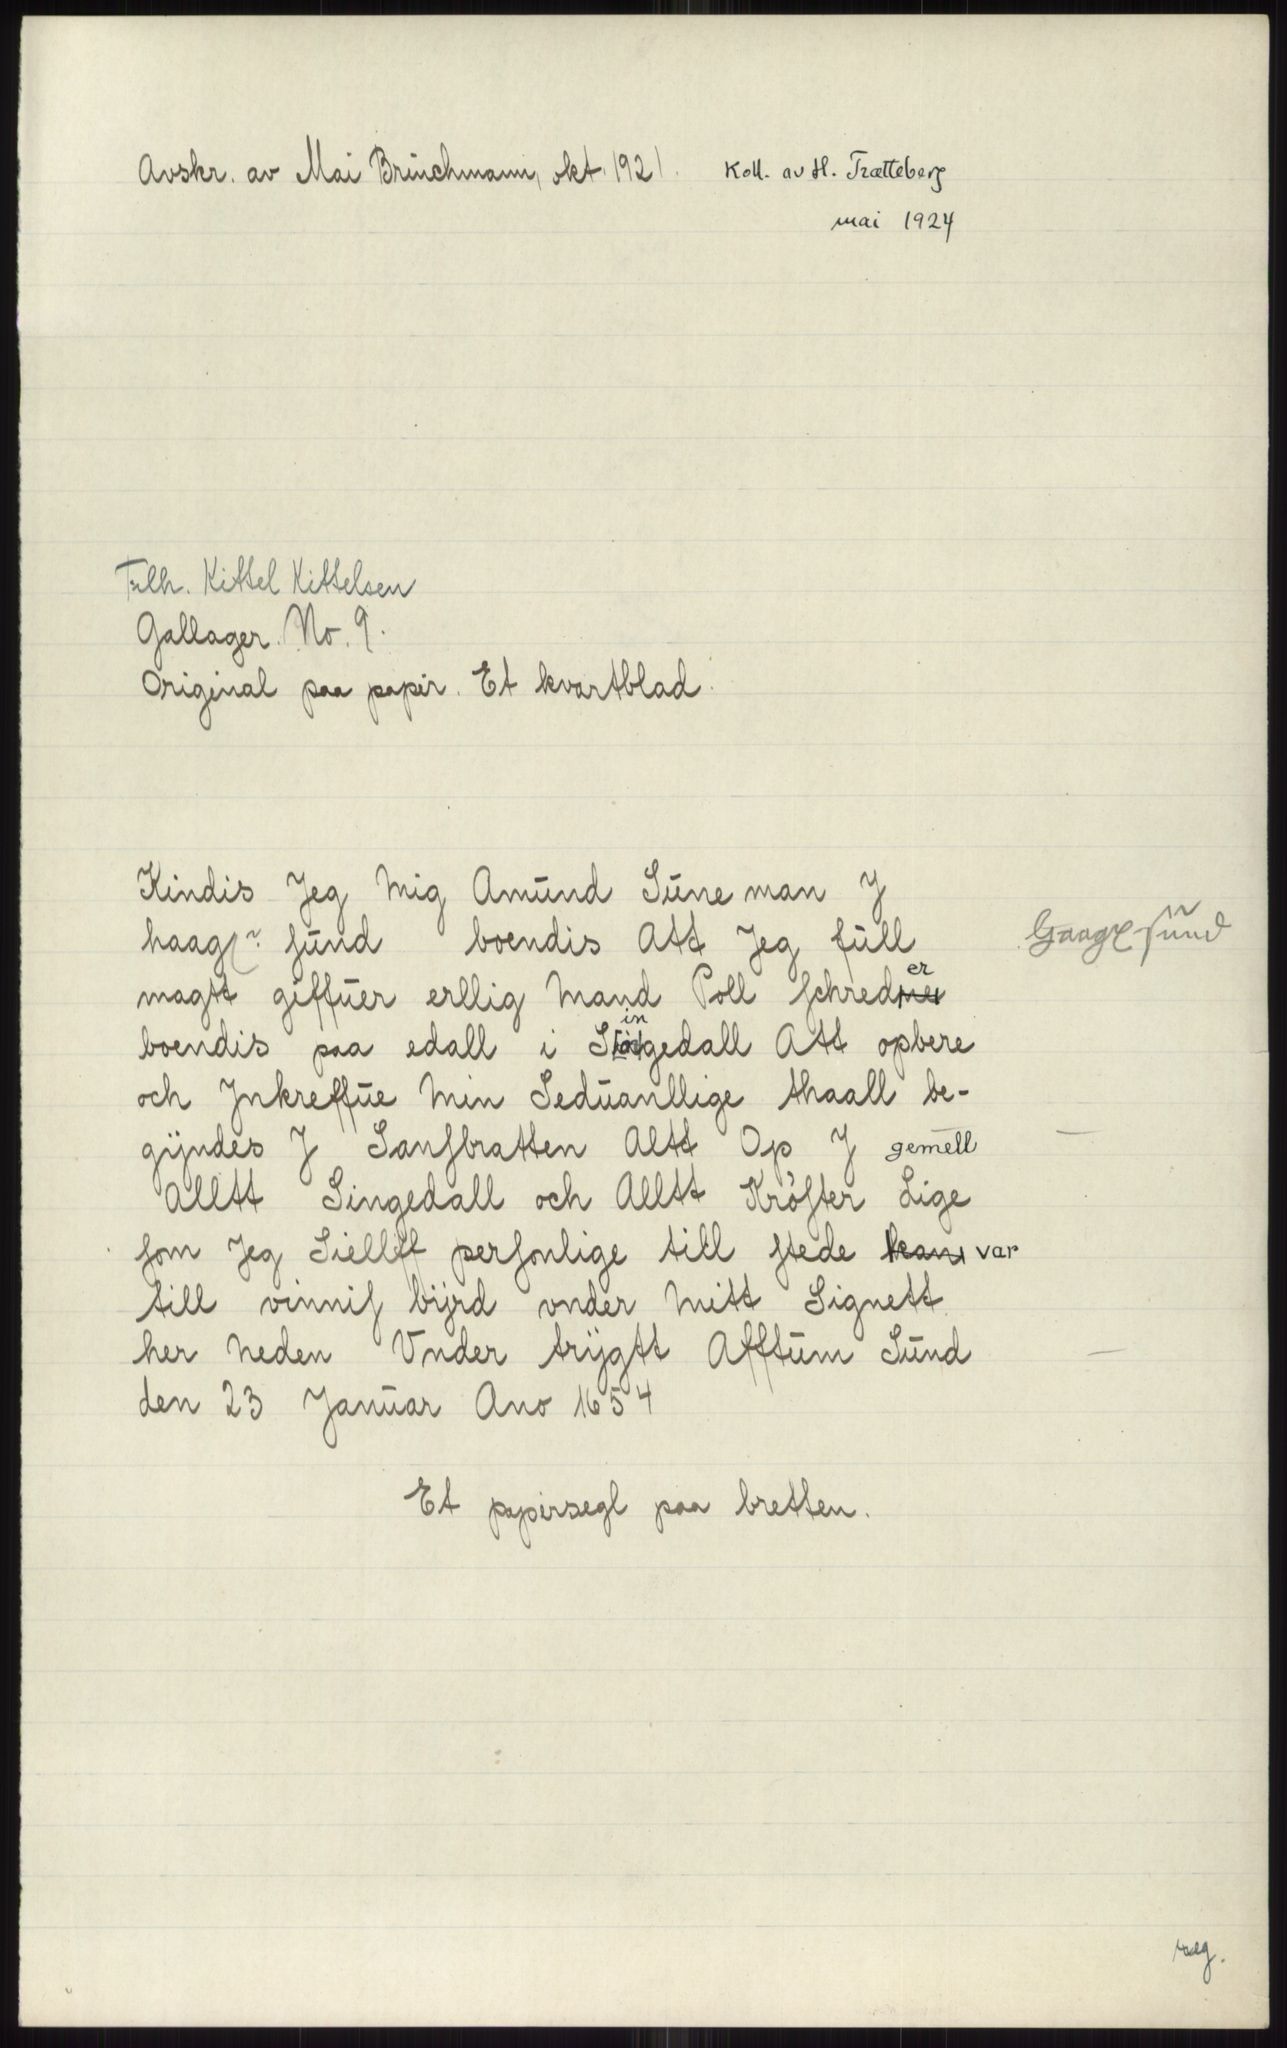 Avskr. av Mai Brüchmann, okt. 1921. Koll. av H. Trætteberg
mai 1924
Tilh. Kittel Kittelsen
Gallager. No. 9.
Original paa papir. Et kvartblad.
Kindis Jeg Mig Amund Sune man J
haagſ? ſund boendis Att Jeg full
magtt giffuer erllig Mand Poll ſchreder
boendis paa edall i Singedall Att opbere
och Jnkreffue Min Seduanllige thaall be-
gÿndes J Sanſbratten Altt Op J gemell
Alltt Singedall och Alltt Kröſter Lige
ſom Jeg Sielleff perſonlige till ſtede kan var
till vinniſ bÿrd vnder Mitt Signett
her Neden Vnder trÿgtt Afftum Sund
den 23 Januar Ano 1654
Et papirsegl paa bretten.
reg.